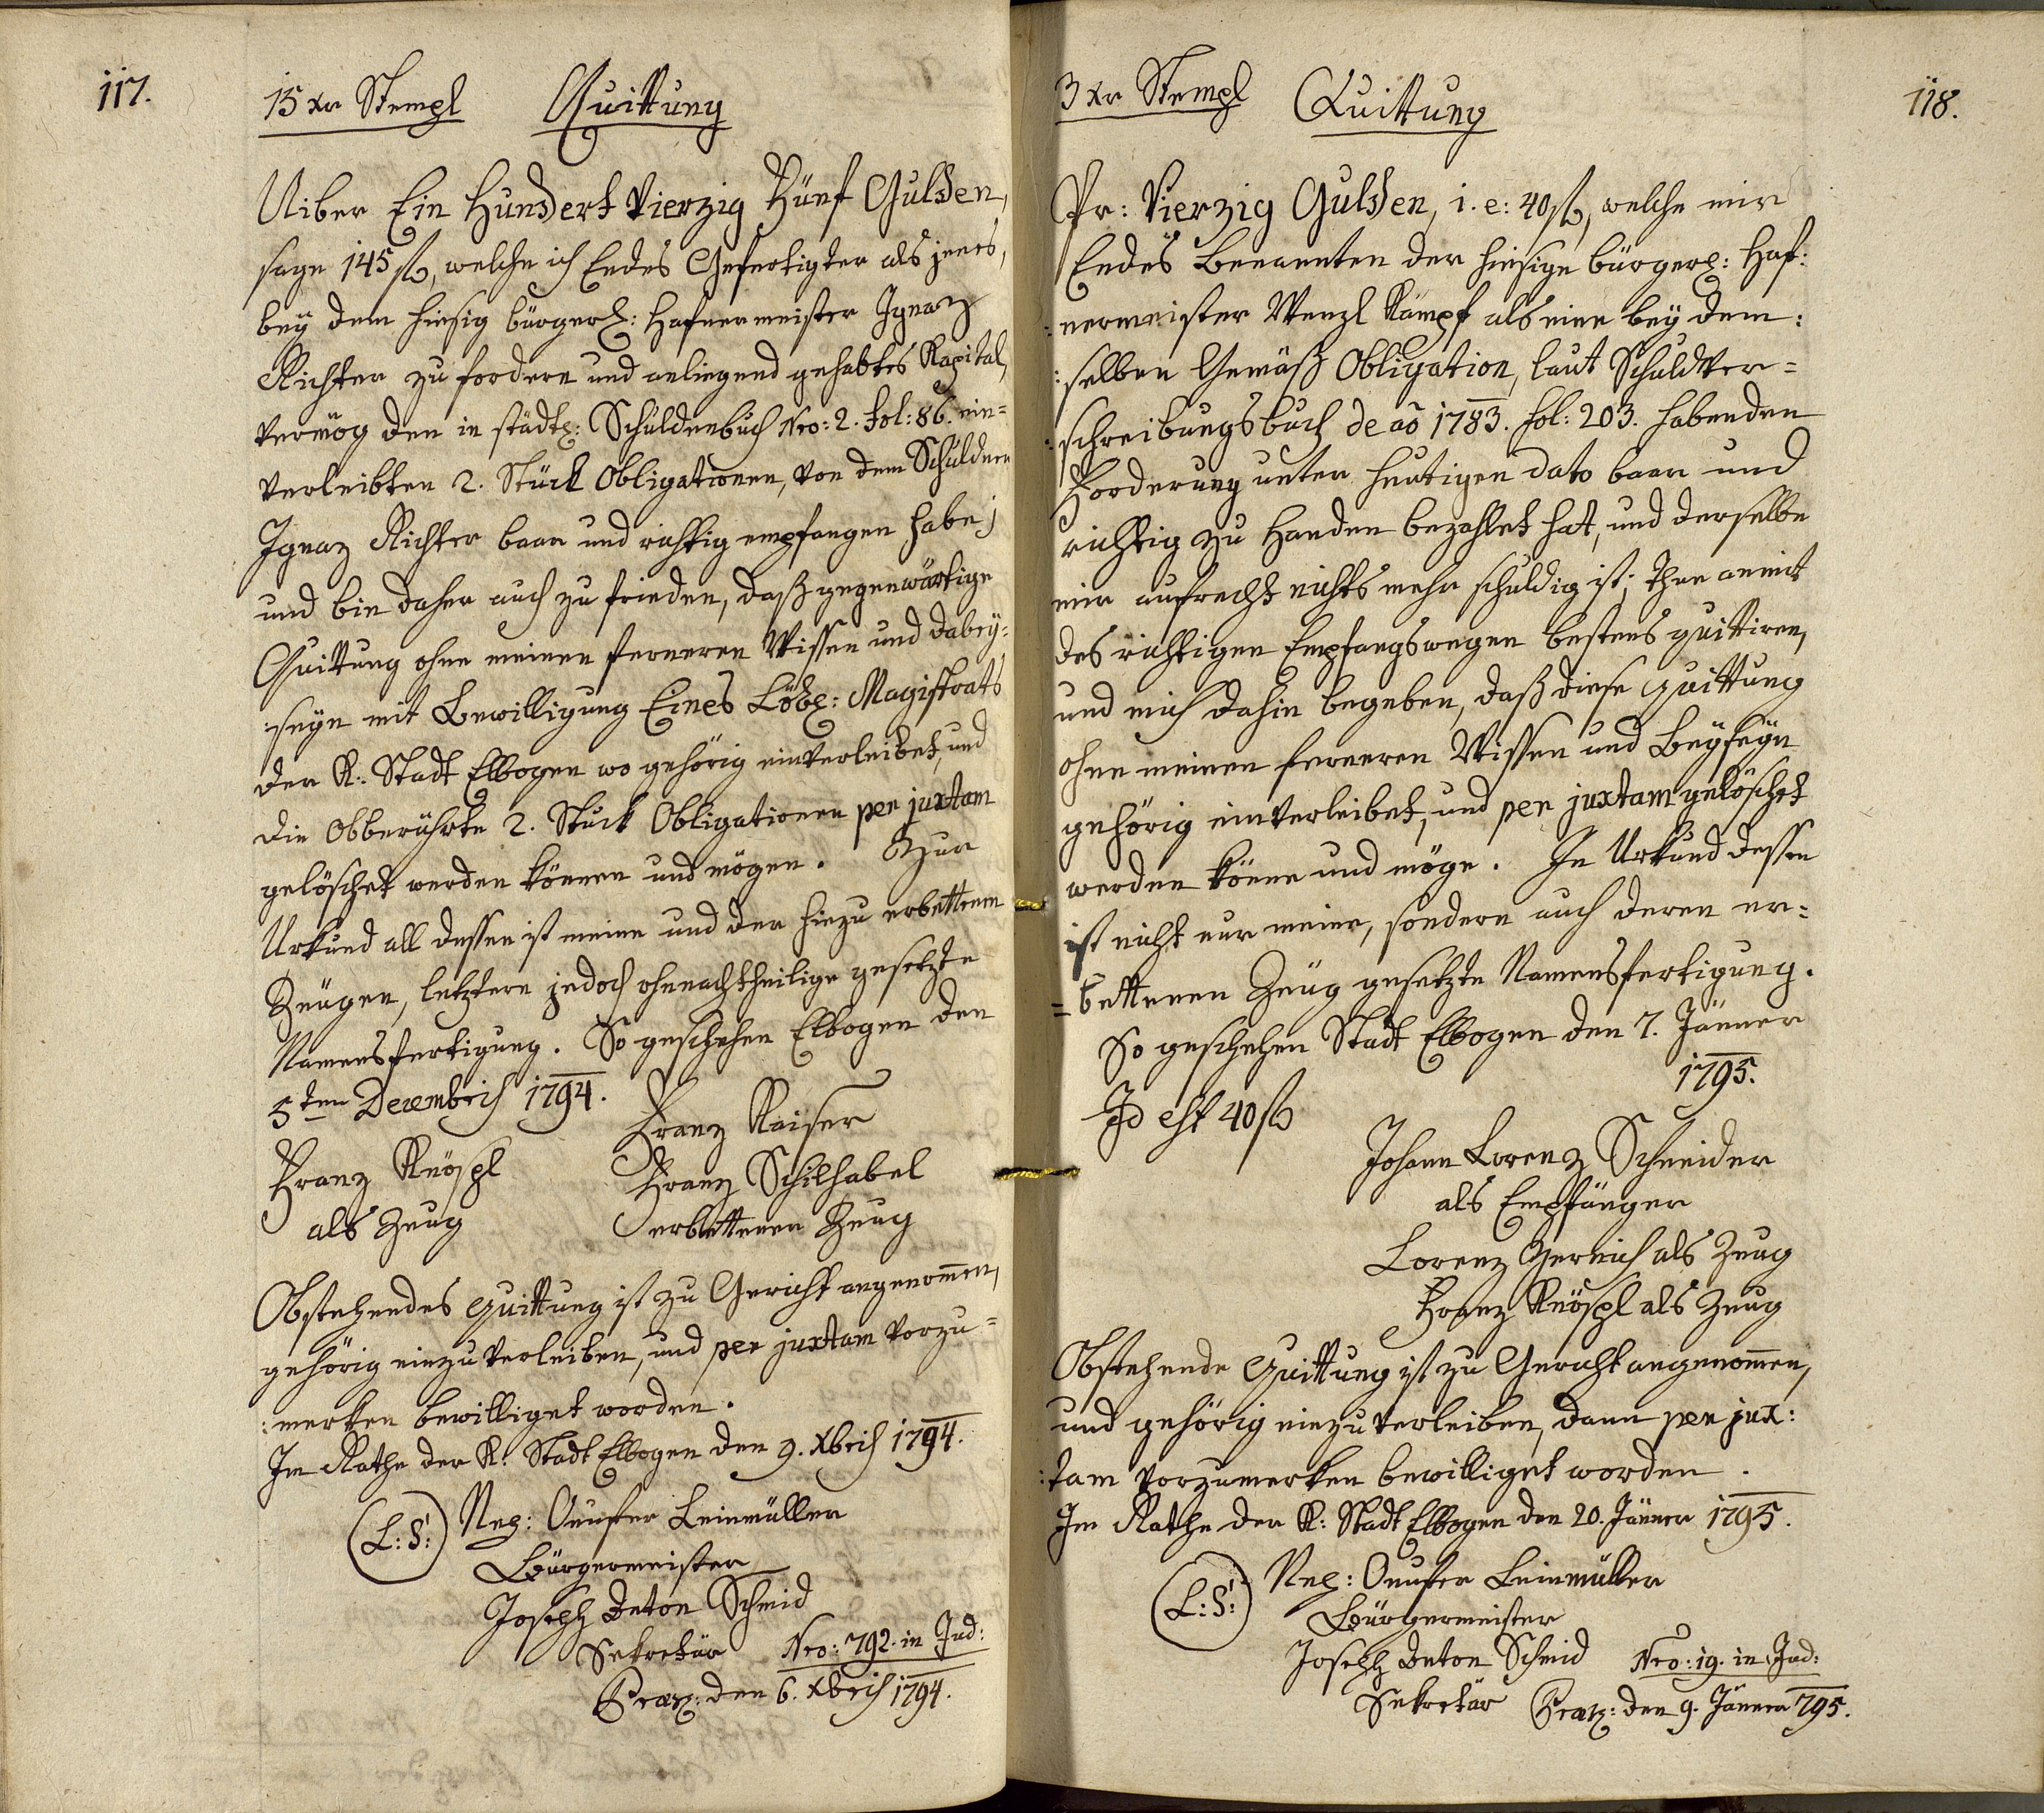 117.
15 xr Stempl Quittung
Uiber Ein Hundert Vierzig Fünf Gulden,
sage 145 fl, welche ich Endes Gefertigter als jenes,
bey dem hiesig bürgerl: Hafnermeister Ignaz
Richter zu fordern und anliegend gehabtes Kapital,
vermög den in städtl: Schuldenbuch Nro: 2. fol: 86. ein=
verleibten 2. Stück Obligationen, von dem Schuldner
Ignaz Richter baar und richtig empfangen habe;
und bin daher auch zu frieden, daß gegenwärtige
Quittung ohne meinen ferneren Wissen und dabey=
:seyn mit Bewilligung Eines Löbl: Magistrats
der K: Stadt Elbogen wo gehörig einverleibet, und
die Obberührte 2. Stuck Obligationen per juxtam
gelöschet werden können und mögen. Zur
Urkund all dessen ist meine und der hiezu erbettenen
Zeugen, letztern jedoch ohnnachtheilige gesetzte
Namensfertigung. So geschehen Elbogen den
5ten Decembris 1794.
Franz Kaiser
Franz Knöspl Franz Schilhabel
als Zeug erbettenen Zeug
Obstehendes Quittung ist zu Gericht angenom̄en,
gehörig einzuverleiben, und per juxtam vorzu=
:merken bewilliget worden.
Im Rathe der K: Stadt Elbogen den 9. Xbris 1794.
(L:S:) Onufer Leinmüller
Bürgermeister
Joseph Anton Schmid
Sekretär Nro: 792. in Jud:
Praes: den 6. Xbris 1794.
118.
3 Xr Stempl Quittung
Pr: Vierzig Gulden, i. e: 40 fl, welche mir
Endes Benannten der hiesige bürgerl: Haf:
:nermeister Wenzl Kämpf als eine bey dem:
:selben Gemäß Obligation, laut Schuldver=
:schreibungsbuch de ao 1783. fol: 203. habenden
Forderung unter heutigen dato baar und
richtig zu Handen bezahlet hat, und derselbe
mir aufrecht nichts mehr schuldig ist; Ihne anmit
des richtigen Empfangswegen bestens quittiren,
und mich dahin begeben, daß diese Quittung
ohne meinen ferneren Wissen und Beyseyn
gehörig einverleibet, und per juxtam gelöschet
werden könne und möge. In Urkund dessen
ist nicht nur meine, sondern auch deren er=
=bettenen Zeug gesetzte Namensfertigung.
So geschehen Stadt Elbogen den 7. Jänner
1795.
Id est 40 fl
Johann Lorenz Schneider
als Empfänger
Lorenz Gernich als Zeug
Franz Knöspl als Zeug
Obstehende Quittung ist zu Gericht angenom̄en,
und gehörig einzuverleiben, dann per jux:
:tam vorzumerken bewilliget worden.
Im Rathe der K: Stadt Elbogen den 20. Jänner 1795.
(L:S:) Onufer Leinmüller
Bürgermeister
Joseph Anton Schmid Nro: 19. in Jud:
Sekretär Praes: den 9. Jänner 795.